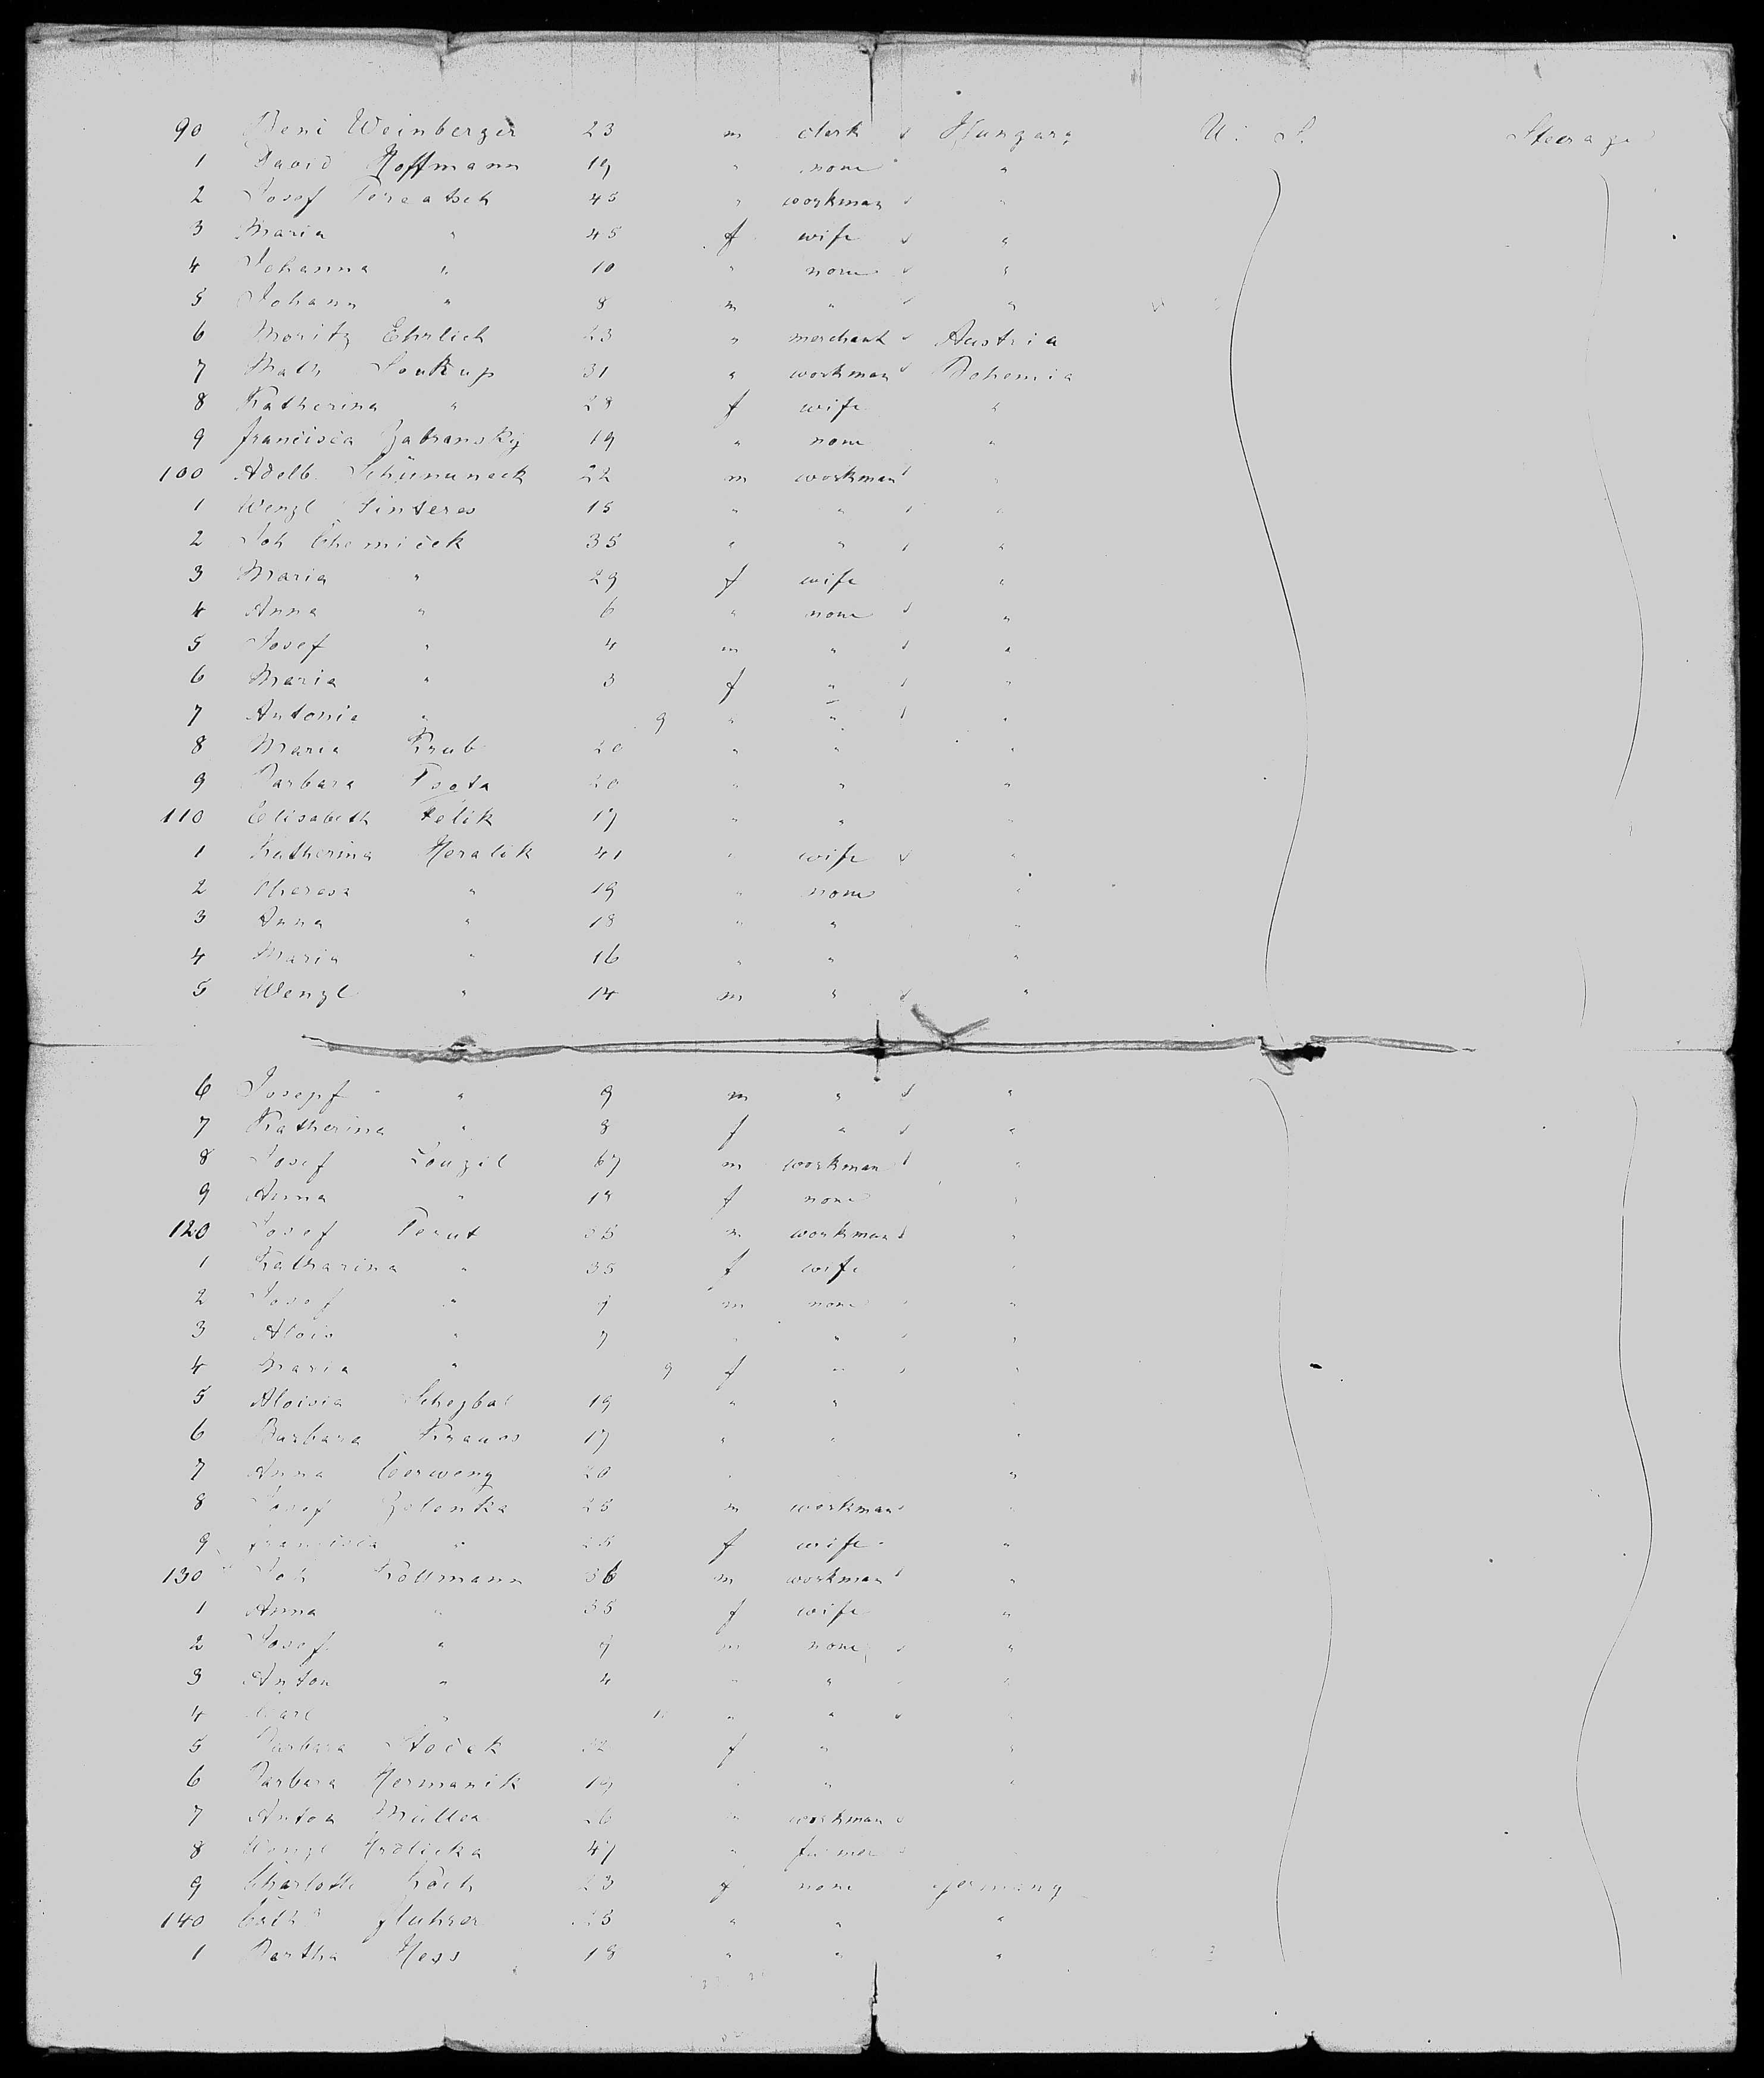 90 Beni Weinberger 23 m clerk Hungary U. S. Steerage
1 David Hoffmann 19 " none "
2 Josef 45 " workman "
3 Maria " 45 f wife "
4 Johanna " 10 " none "
5 Johann " 8 m " "
6 Moritz Ehrlich 23 " merchant Austria
7 Math Soukup 31 " workman Bohemia
8 Katherina " 28 f wife "
9 Francisca Zabransky 19 " none "
100 Adelb. 22 m workman "
1 Wenzl 15 " " "
2 Joh 35 " " "
3 Maria " 29 f wife "
4 Anna " 6 " none "
5 Josef " 4 m " "
6 Maria " 3 f " "
7 Antonia " 9 " " "
8 Maria Krub 20 " " "
9 Barbara 20 " " "
110 Elisabeth 17 " " "
1 Katherina Heralik 41 " wife "
2 Theresa " 19 " none "
3 Anna " 18 " " "
4 Maria " 16 " " "
5 Wenzl " 14 m " "
6 Josepf " 9 m " "
7 Katherina " 8 f " "
8 Josef 67 m workman "
9 Anna " 18 f none "
120 Josef m workman "
1 Katharina " 35 f wife "
2 Josef " m none "
3 Alois " 7 " " "
4 Maria " 9 f " "
5 Aloisia Schejbal 19 " " "
6 Barbara Kraus 17 " " "
7 Anna Cerweny 20 "
8 Josef Zelenka 25 m workman "
9 Francisca " 25 f wife "
130 Joh 36 m workman "
1 Anna " 35 f wife "
2 Josef " m none "
3 Anton " 4 " " "
4 Carl " " " "
5 Barbara f " "
6 Barbara Hermanik 19 " " "
7 Anton Müller " workman
8 Wenzl 47 " farmer
9 Charlotte Koch 23 f none Germany
140 Cath 23 " " "
1 Bertha Hess 18 " " "